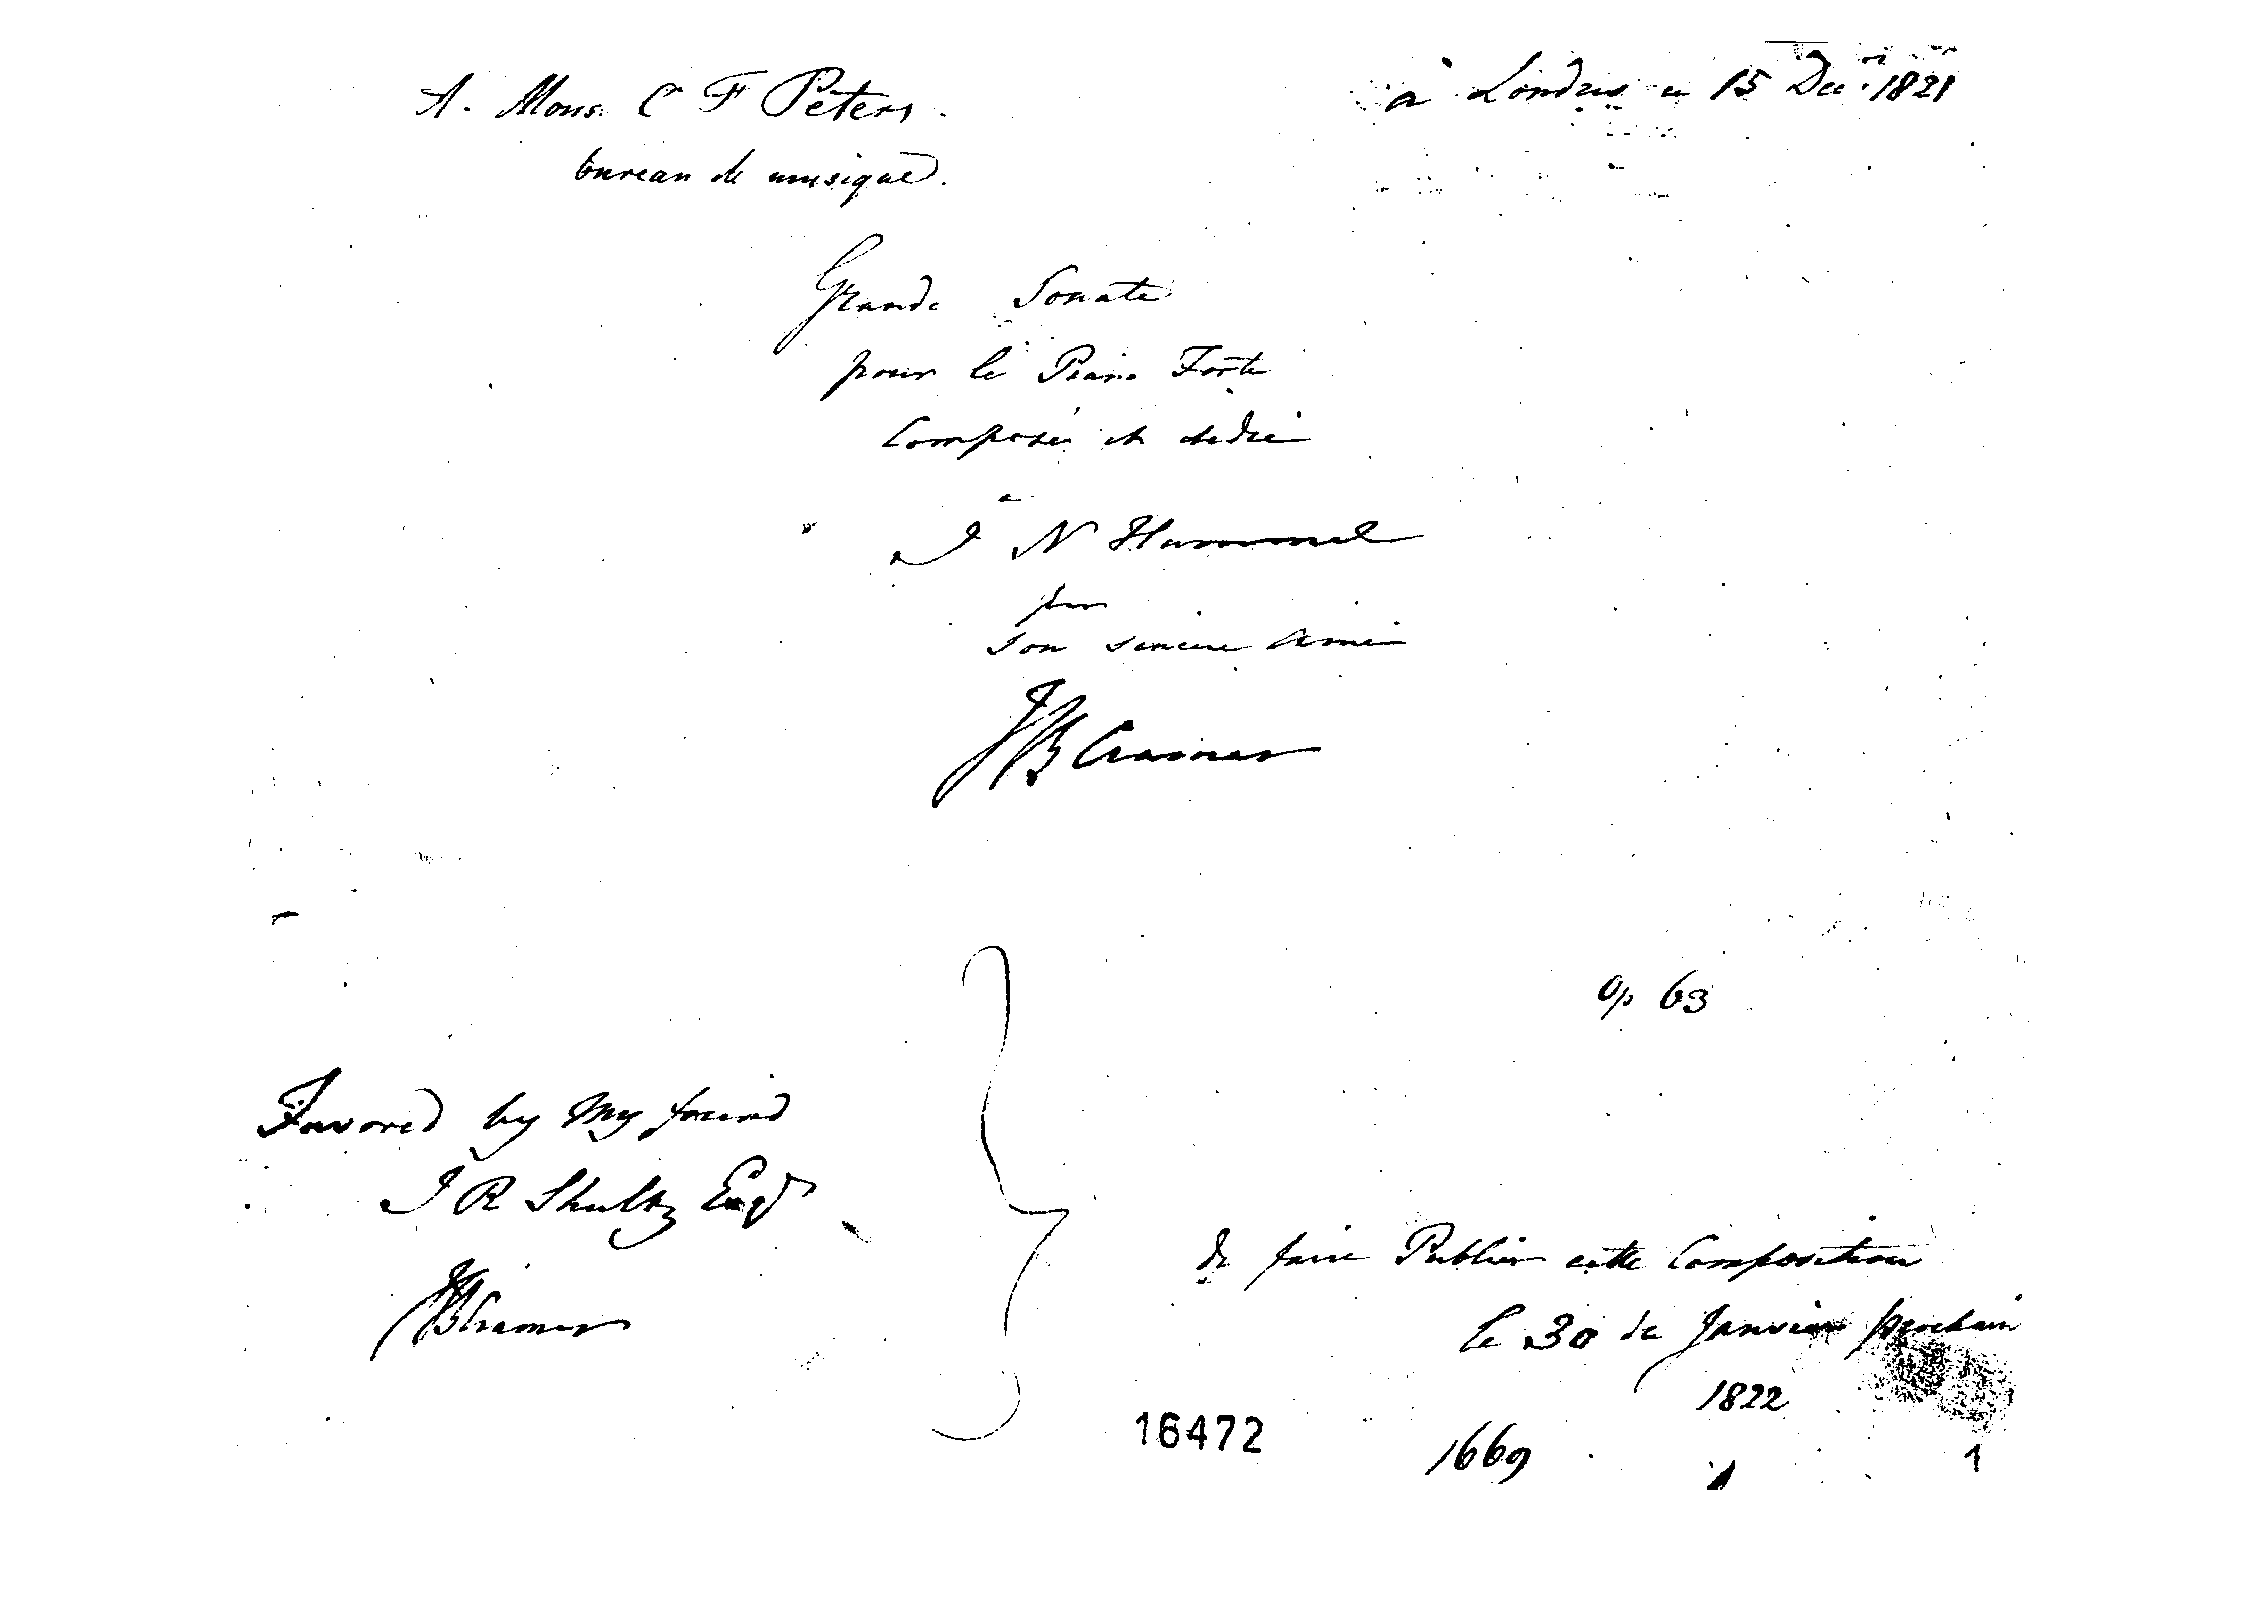 A. Mons. C F Peters.
à Londres ce 15 Dec. 1821
bureau de musique.
Grande Sonate
pour le Piano Forte
Composée et dediée
a
J N Hummel
par
son sincere Ami
J B Cramer
op 63
Favored by My friend
J R Shultz Esqr
J B Cramer
de faire Publier cette Composition
le 30 de Janvier prochain
1822
16472
1669
1